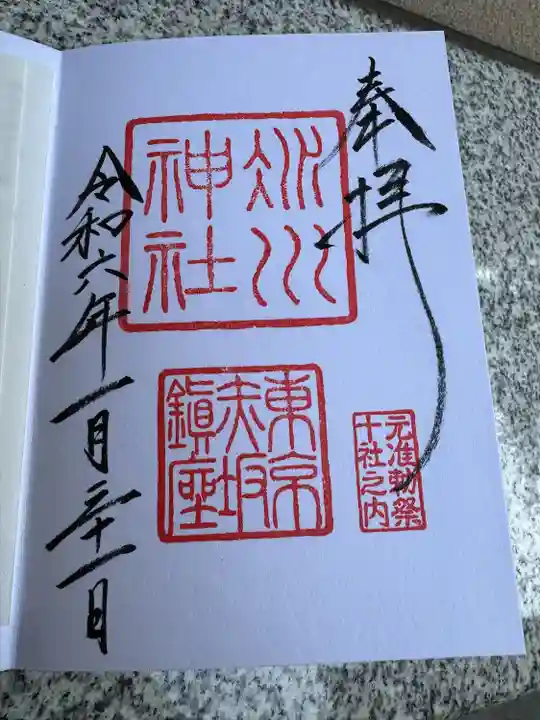 奉拝
氷川
神社
東京
赤坂
鎮座
元准勅祭
十社之内
令和六年一月二十一日